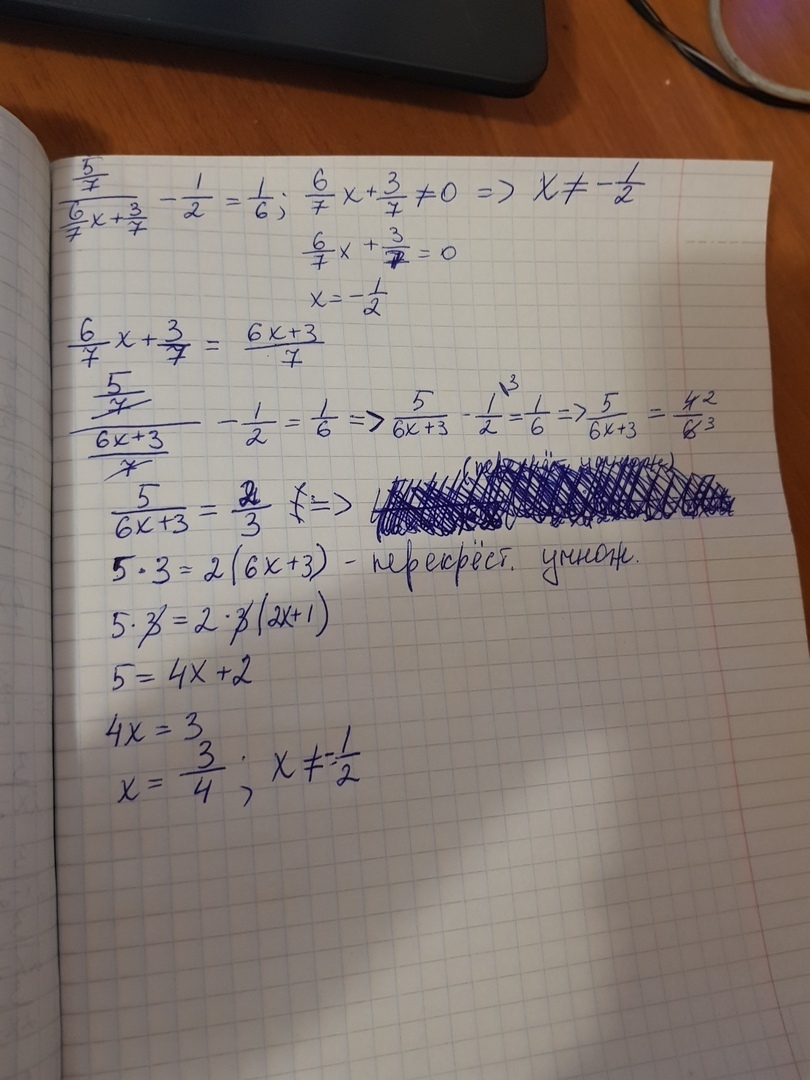 (5/7)/(6/7 x + 3/7) - 1/2 = 1/6; 6/7 x + 3/7 ≠ 0 => x ≠ -1/2
6/7 x + 3/7 = 0
x = -1/2
6/7 x + 3/7 = (6x+3)/7
(5/7)/((6x+3)/7) - 1/2 = 1/6 => 5/(6x+3) - 1/2 \3 = 1/6 => 5/(6x+3) = 4 2/6 3
5/(6x+3) = 2/3 =>
5·3 = 2(6x+3) - перекрёст. умнож.
5·3 = 2·3(2x+1)
5 = 4x+2
4x = 3
x = 3/4; x ≠ -1/2